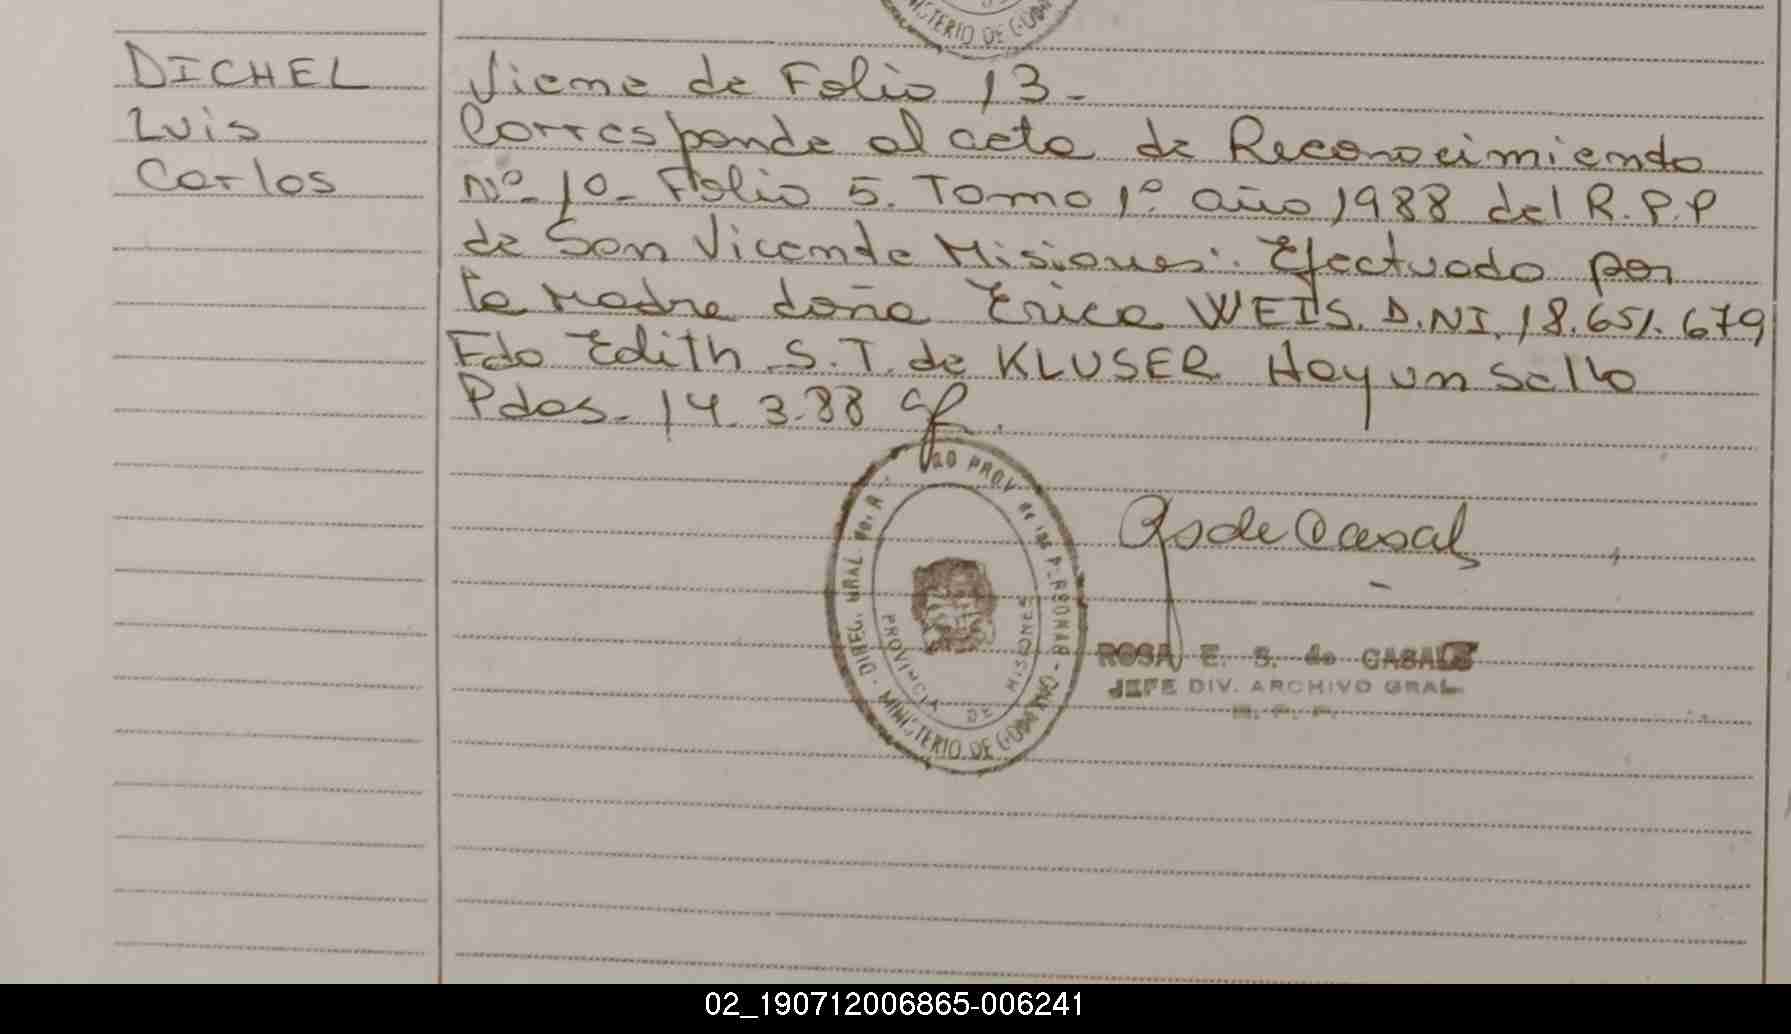 MINISTERIO DE GOB
DICHEL
Luis
Carlos
Viene de Folio 13-
Corresponde al acta de Reconocimiendo
Nº 10- Folio 5. Tomo 1º año 1988 del R.P.P
de San Vicende Misiones. Efectuado por
la Madre doña Erica WEIS. D.NI. 18.651.679
Fdo Edith S.T. de KLUSER Hay un sello
Pdas- 14. 3-88
PROV de las PERSONAS
DIREC. GRAL.
MINISTERIO DE GOB
PROVINCIA DE MISIONES
RsdeCasal
ROSA E. S. de CASALS
JEFE DIV. ARCHIVO GRAL
R. P. P.
02_190712006865-006241